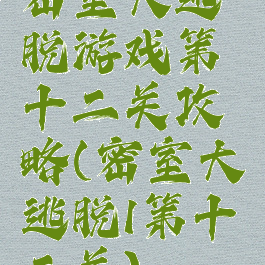 密室大逃
脱游戏第
十二关攻
略(密室大
逃脱1第十
二关)